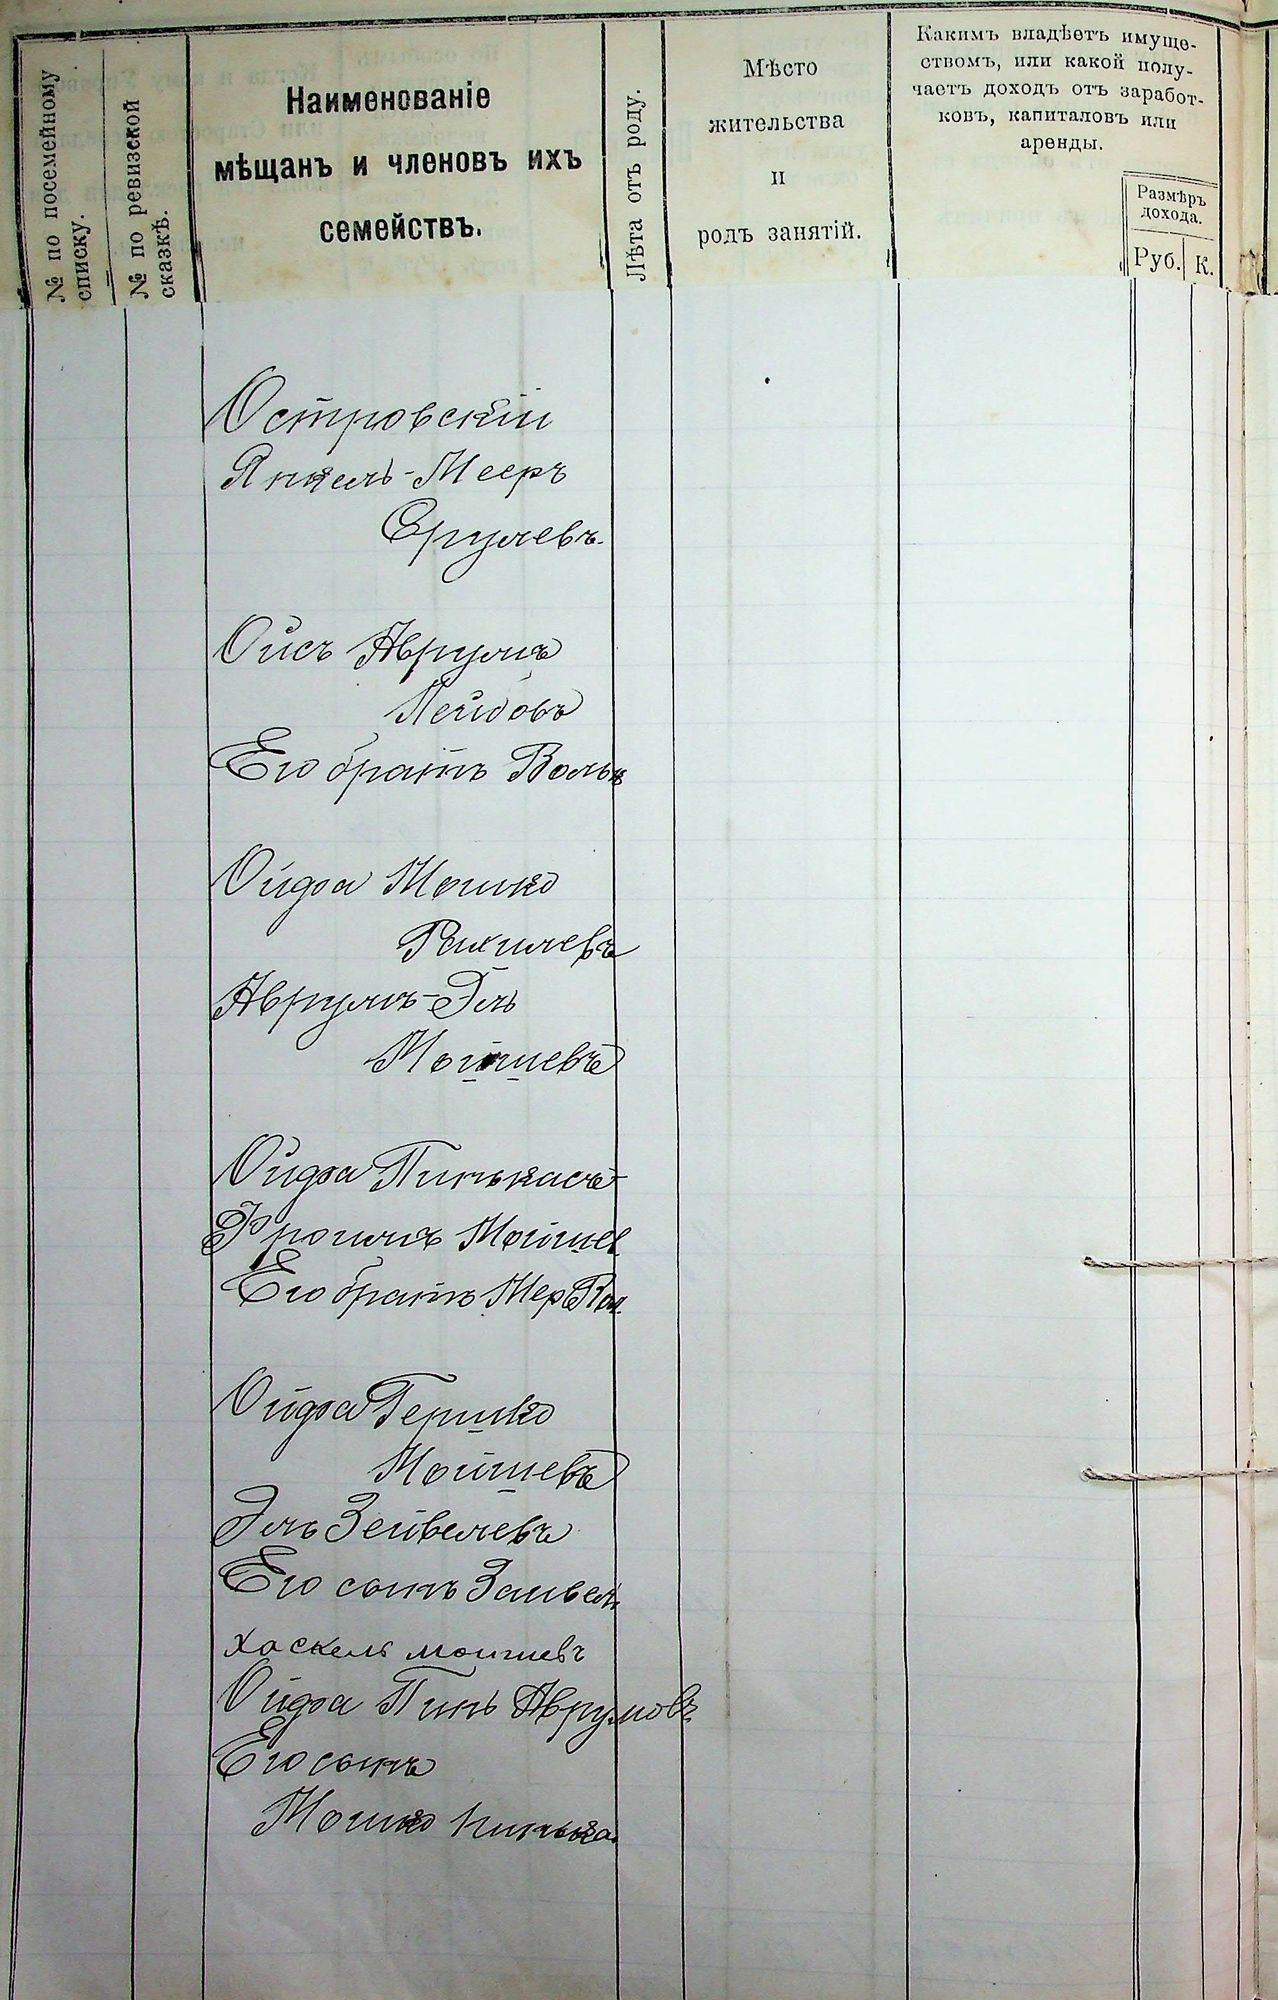 № по посемейному
списку.
№ по ревизской
сказкѣ.
Наименованіе
мѣщанъ и членовъ ихъ
семействъ.
Лѣта отъ роду.
Мѣсто
жительства
и
родъ занятій.
Какимъ владѣетъ имуще-
ствомъ, или какой полу-
чаетъ доходъ отъ заработ-
ковъ, капиталовъ или
аренды.
Размѣръ
дохода.
Руб. К.
Островскій
Янкель-Мееръ
Срулевъ.
Ойсъ Аврумъ
Лейбовъ
Его братъ Вольк
Ойфа Мошко
Рахилевъ
Аврумъ-Эль
Мойшевъ
Ойфа Пинькасъ-
Фроимъ Мойшев
Его братъ Мер Вол.
Ойфа Гершко
Мойшевъ
Эль Зейвелевъ
Его сынъ Занвель
Хаскель Мошиевъ
Ойфа Пинь Аврумовъ
Его сынъ
Мошко Пинька.